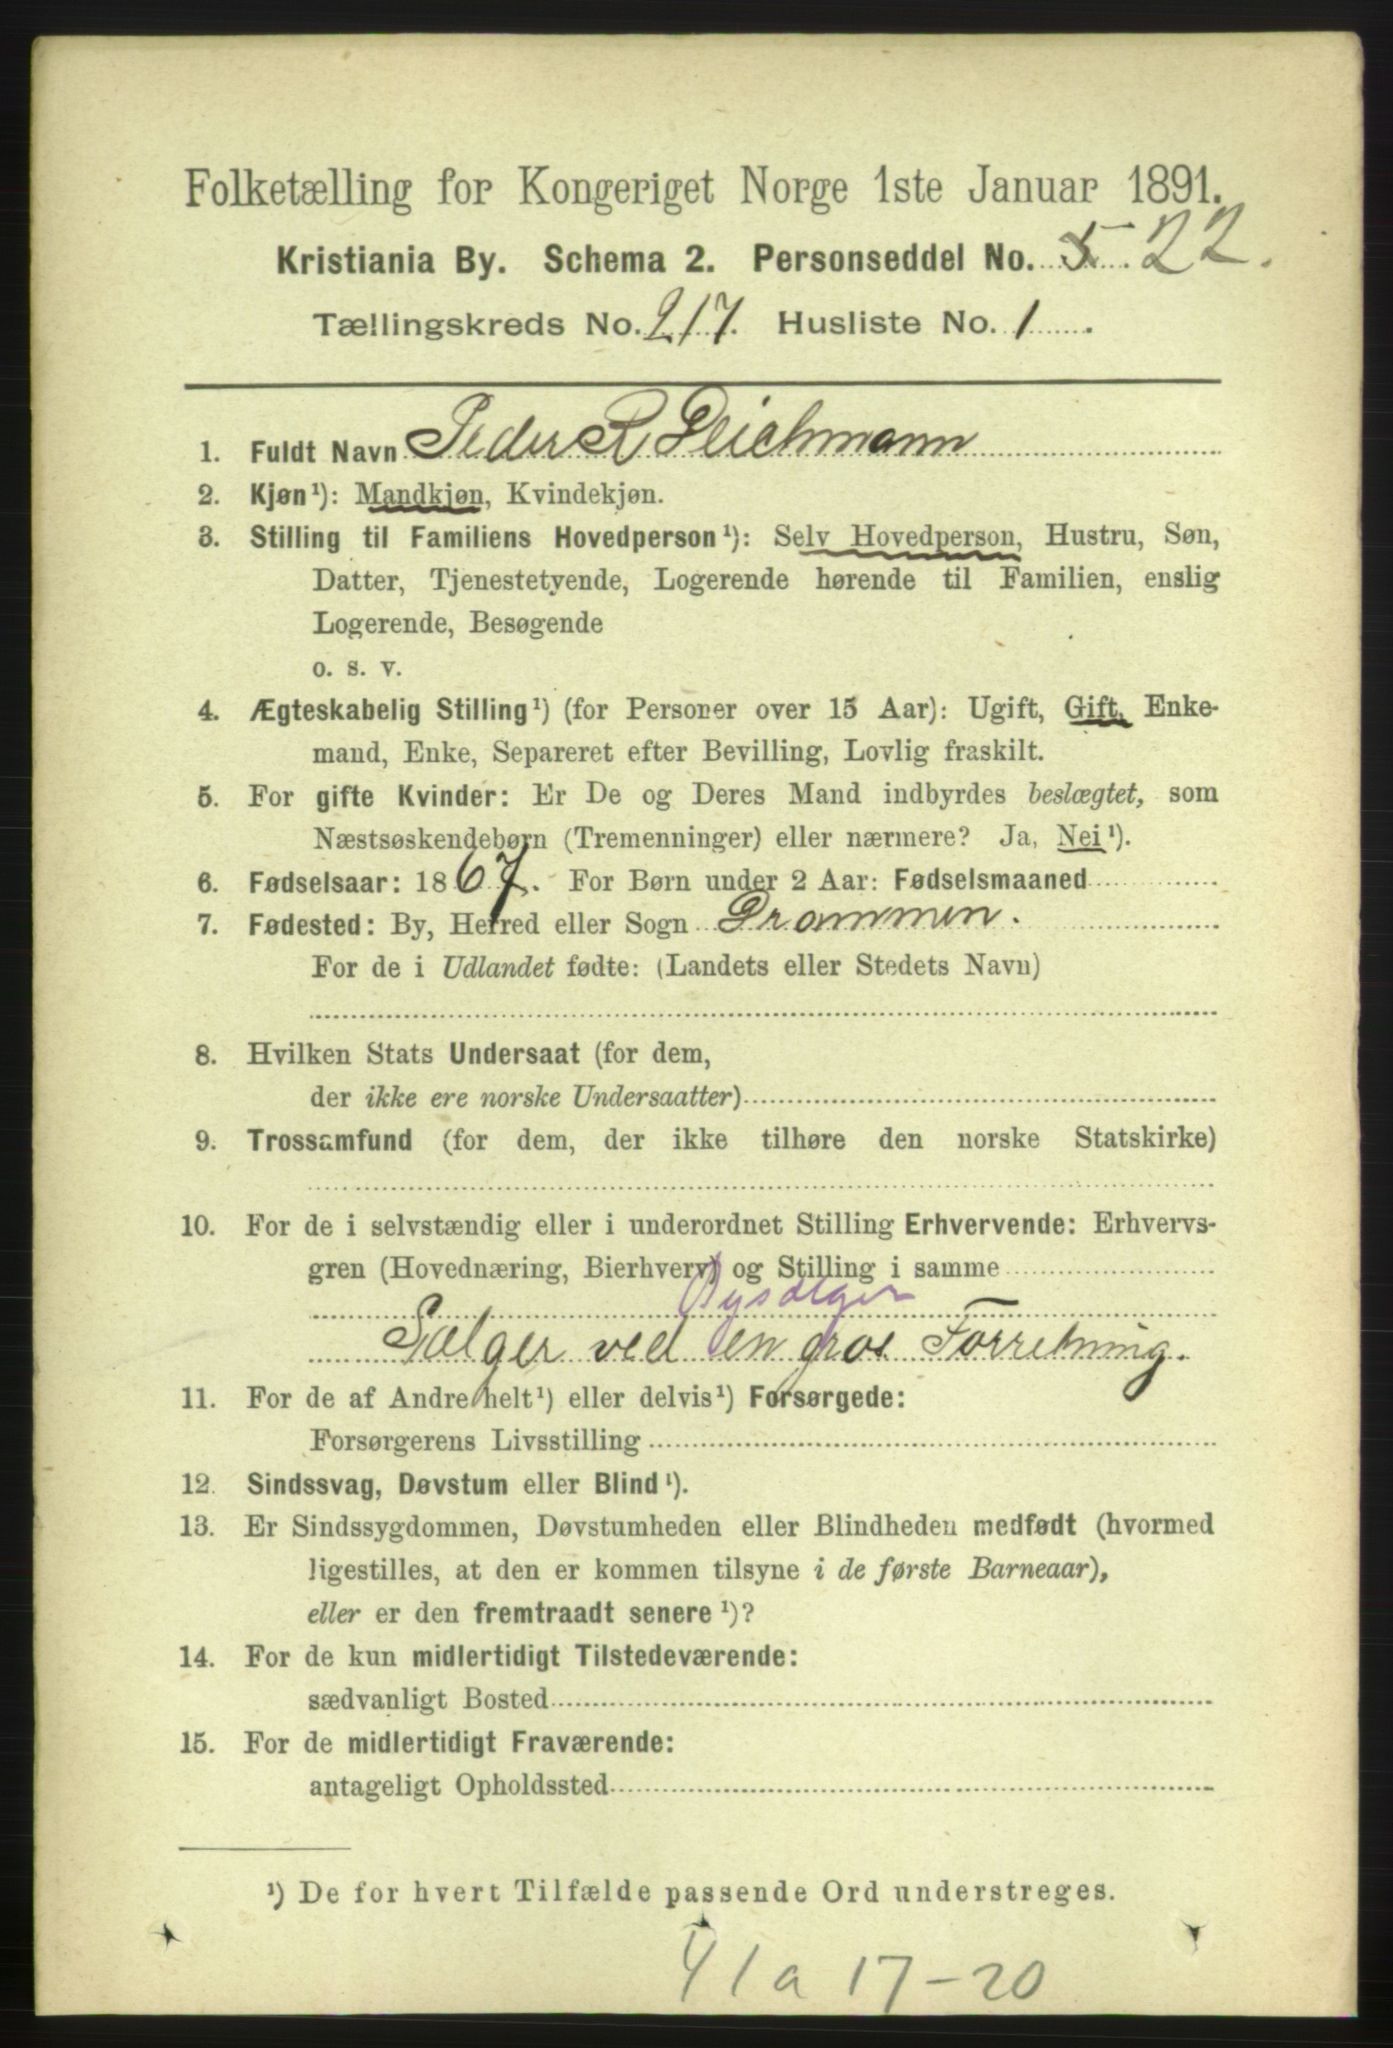 Folketælling for Kongeriget Norge 1ste Januar 1891.
Kristiania By. Schema 2. Personseddel No. 5 22.
Tællingskreds No. 217. Husliste No. 1
1. Fuldt Navn Peder R Deichmann
2. Kjøn¹): Mandkjøn, Kvindekjøn.
3. Stilling til Familiens Hovedperson¹): Selv Hovedperson, Hustru, Søn,
Datter, Tjenestetyende, Logerende hørende til Familien, enslig
Logerende, Besøgende
o. s. v.
4. Ægteskabelig Stilling¹) (for Personer over 15 Aar): Ugift, Gift, Enke-
mand, Enke, Separeret efter Bevilling, Lovlig fraskilt.
5. For gifte Kvinder: Er De og Deres Mand indbyrdes beslægtet, som
Næstsøskendebørn (Tremenninger) eller nærmere? Ja, Nei¹).
6. Fødselsaar: 1867. For Børn under 2 Aar: Fødselsmaaned
7. Fødested: By, Herred eller Sogn Drammen.
For de i Udlandet fødte: (Landets eller Stedets Navn)
8. Hvilken Stats Undersaat (for dem,
der ikke ere norske Undersaatter)
9. Trossamfund (for dem, der ikke tilhøre den norske Statskirke)
10. For de i selvstændig eller i underordnet Stilling Erhvervende: Erhvervs-
gren (Hovednæring, Bierhverv) og Stilling i samme
Bysælger
Sælger ved en gros Forretning.
11. For de af Andre helt¹) eller delvis¹) Forsørgede:
Forsørgerens Livsstilling
12. Sindssvag, Døvstum eller Blind¹).
13. Er Sindssygdommen, Døvstumheden eller Blindheden medfødt (hvormed
ligestilles, at den er kommen tilsyne i de første Barneaar),
eller er den fremtraadt senere¹)?
14. For de kun midlertidigt Tilstedeværende:
sædvanligt Bosted
15. For de midlertidigt Fraværende:
antageligt Opholdssted
¹) De for hvert Tilfælde passende Ord understreges.
41a 17-20